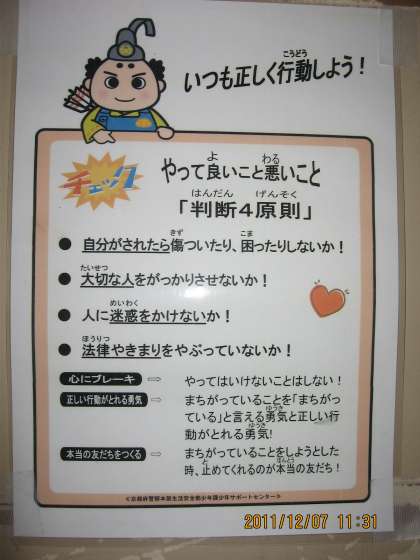 いつも正しく行動しよう！
チェック
やって良いこと悪いこと
「判断４原則」
● 自分がされたら傷ついたり、困ったりしないか！
● 大切な人をがっかりさせないか！
● 人に迷惑をかけないか！
● 法律やきまりをやぶっていないか！
心にブレーキ ⇨ やってはいけないことはしない！
正しい行動がとれる勇気 ⇨ まちがっていることを「まちがっ
ている」と言える勇気と正しい行
動がとれる勇気!
本当の友だちをつくる ⇨ まちがっていることをしようとした
時、止めてくれるのが本当の友だち！
≪京都府警察本部生活安全部少年課少年サポートセンター≫
2011/12/07 11:31